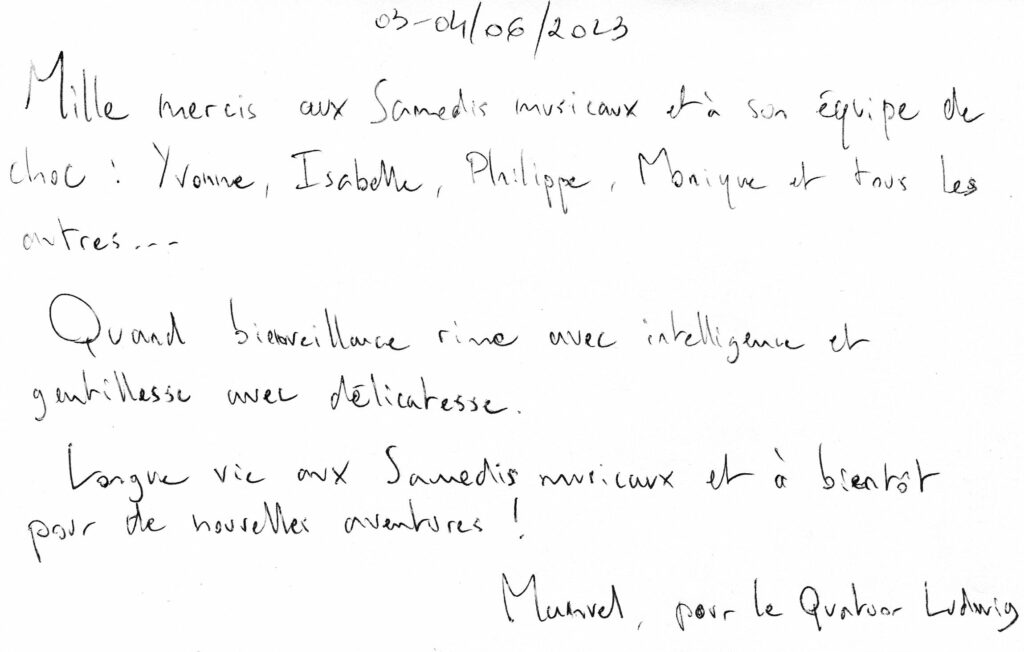 03-04/06/2023
Mille mercis aux Samedis musicaux et à son équipe de
choc : Yvonne, Isabelle, Philippe, Monique et tous les
autres...
Quand bienveillance rime avec intelligence et
gentillesse avec délicatesse.
Longue vie aux Samedis musicaux et à bientôt
pour de nouvelles aventures !
Manuel, pour le Quatuor Ludwig